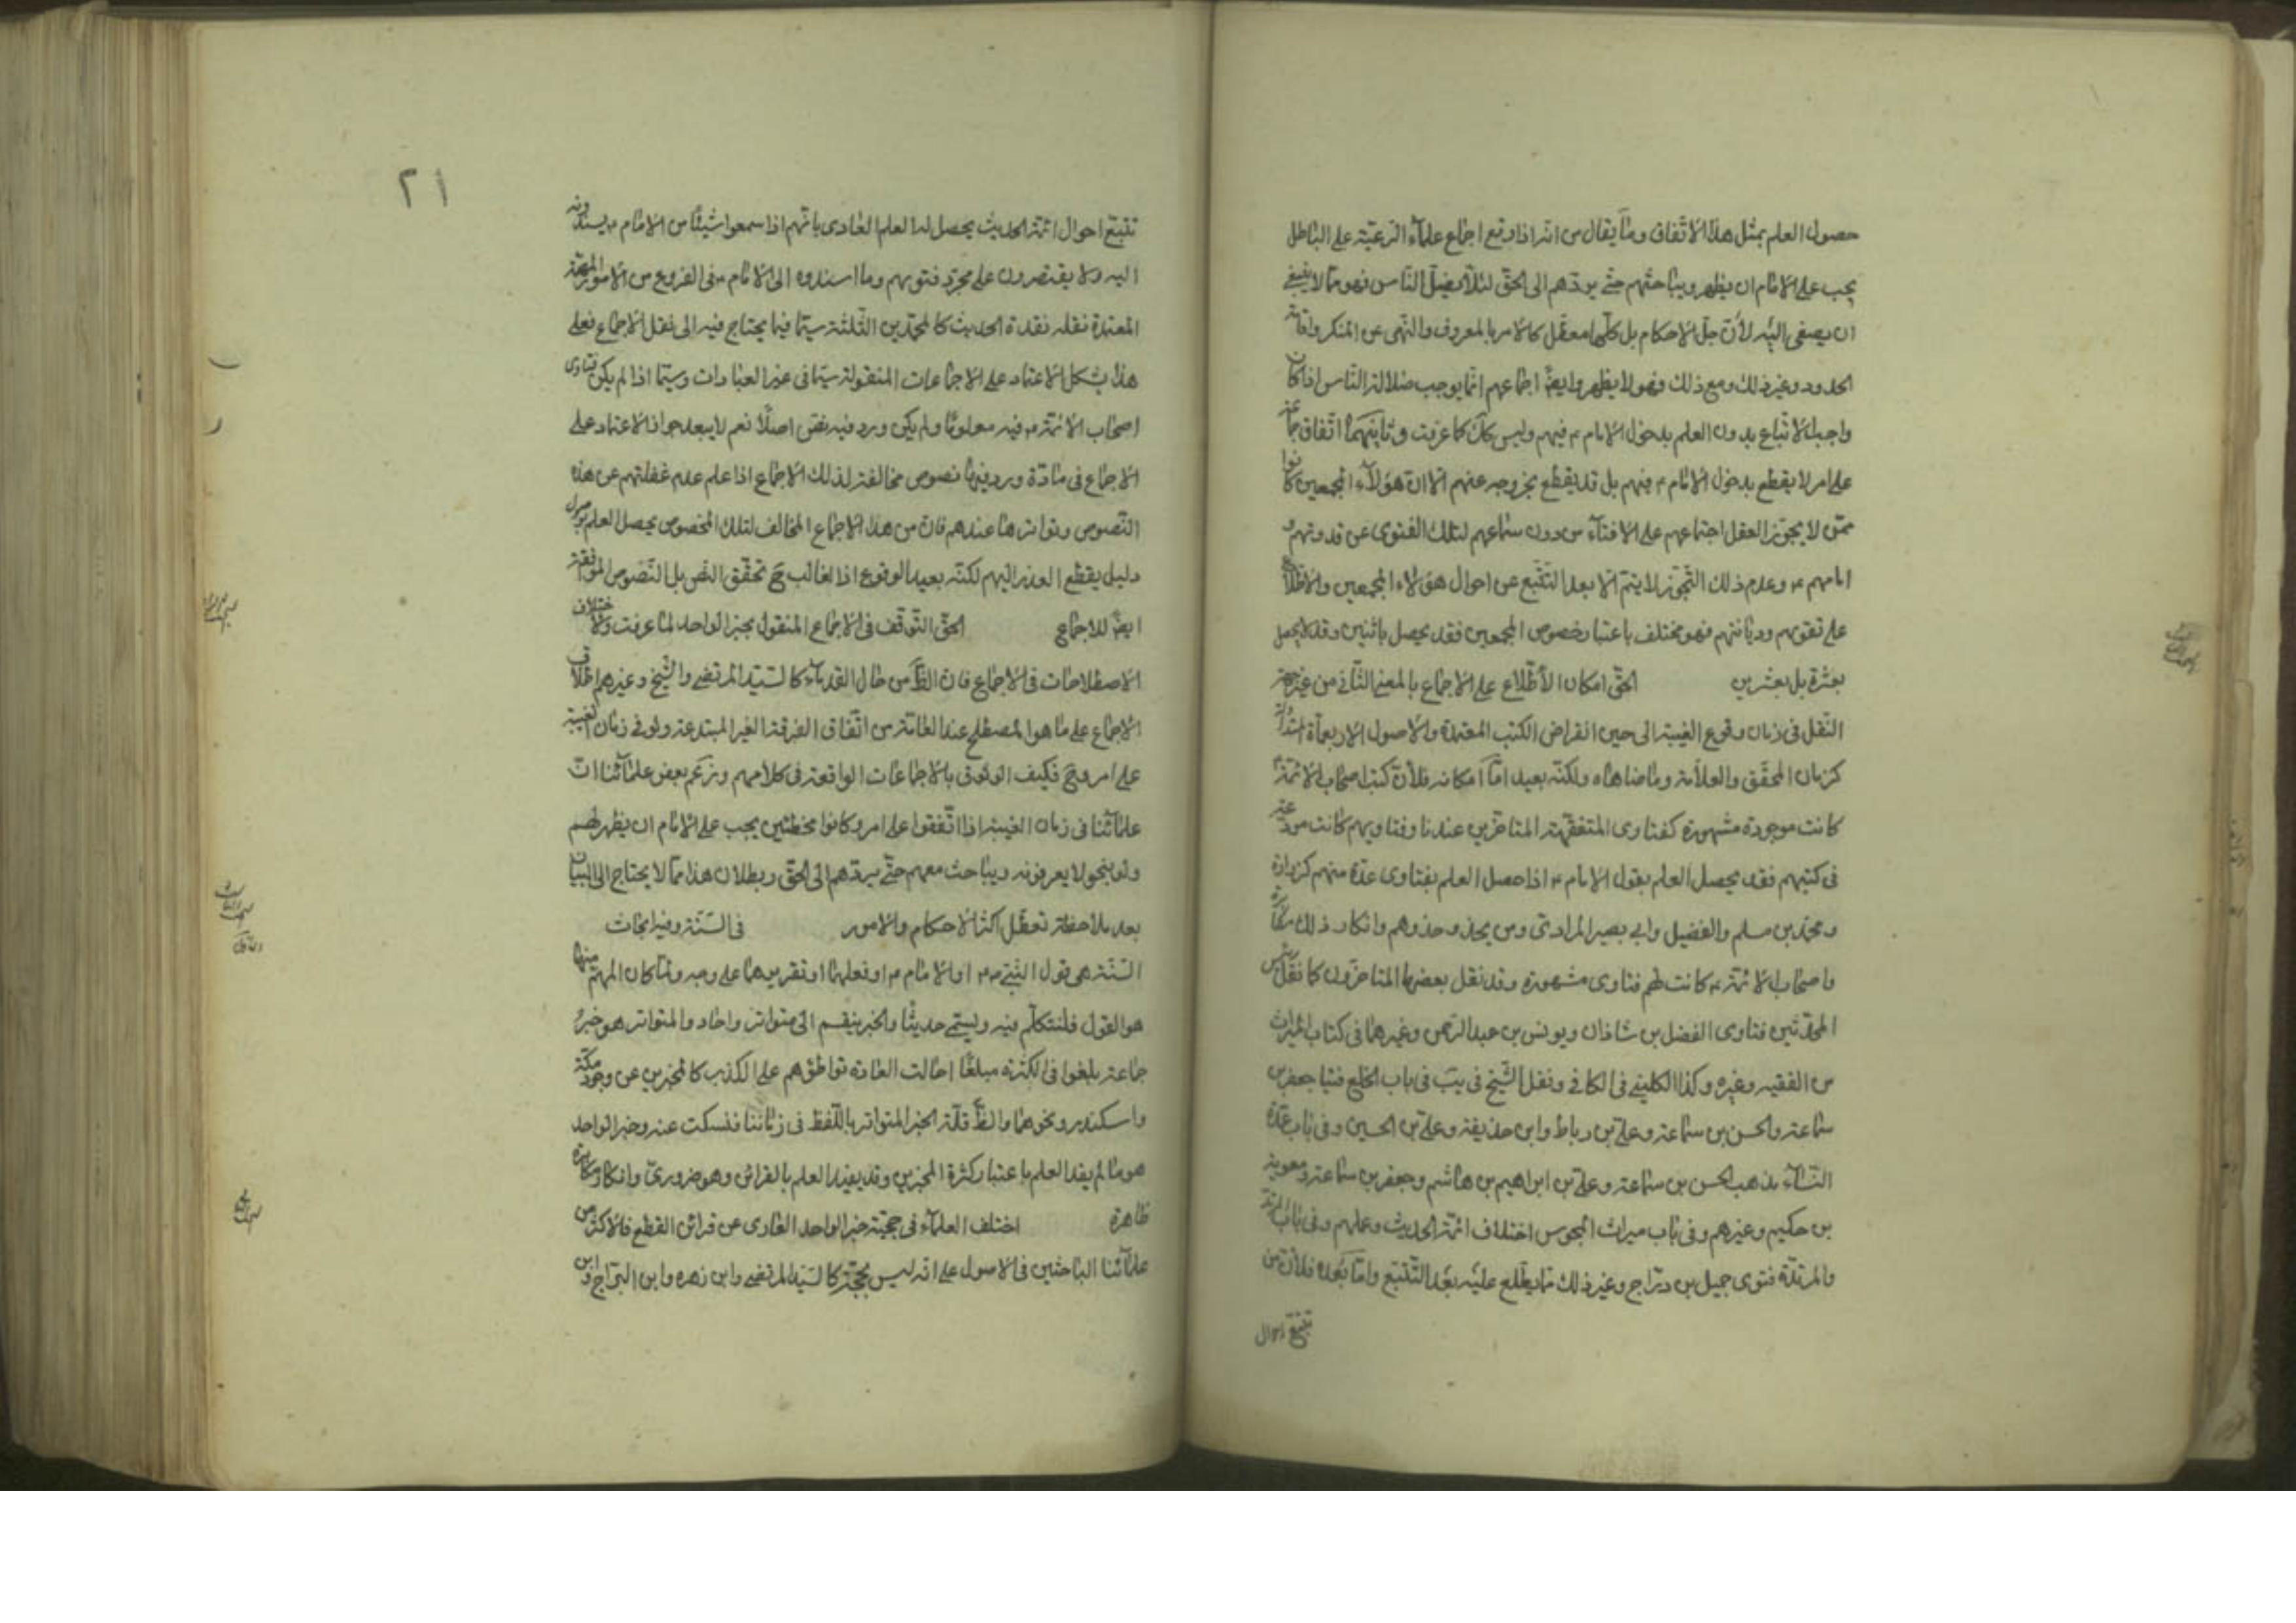 حصول العلم بمثل هذا الاتفاق وما يقال من انه اذا وقع اجماع علماء الرعيّة على الباطل
يجب على الامام ان يظهر ويباحثهم حتى يردّهم الى الحقّ لئلّا يضلّ الناس فهو ممّا لا ينبغي
ان يصغى اليه لأنّ جلّ الاحكام بل كلّها معطّل كالامر بالمعروف والنهى عن المنكر واقامة
الحدود وغير ذلك ومع ذلك فهو لا يظهر وايضاً اجماعهم انّما يوجب ضلالة النّاس اذا كان
واجب الاتباع بدون العلم بدخول الامام ٤ فيهم وليس كك كما عرفت وثانيهما اتفاق جماعة
على امر لا يقطع بدخول الامام ٤ فيهم بل قد يقطع بخروجه عنهم الّا ان هؤلاء المجمعين كانوا
ممّن لا يجوّز العقل اجتماعهم على الافتاء من دون سماعهم لتلك الفتوى عن قدوتهم و
امامهم ٤ وعدم ذلك التّجويز لا يتمّ الّا بعد التّتبّع عن احوال هؤلاء المجمعين والاطّلاع
على تقويهم وديانتهم فهو مختلف باعتبار خصوص المجمعين فقد يحصل باثنين وقد لا يحصل
بعشرة بل بعشرين الحقّ امكان الاطّلاع على الاجماع بالمعنى الثّاني من غير جهة
النّقل فى زمان وقوع الغيبة الى حين انقراض الكتب المعتمدة والاصول الاربعمأة المتداولة
كزمان المحقّق والعلّامة وما ضاهاه ولكنّه بعيد امّا امكانه فلأنّ كتب اصحاب الائمّة ٤
كانت موجودة مشهورة كفتاوى المتفقّهة المتاخّرين عندنا وفتاويهم كانت مودعة
فى كتبهم فقد يحصل العلم بقول الامام ٤ اذا حصل العلم بفتاوى عدّة منهم كزرارة
ومحمّد بن مسلم والفضيل وابى بصير المرادى ومن يحذو حذوهم وانكار ذلك مكابرة
واصحاب الائمّة ٤ كانت لهم فتاوى مشهورة وقد نقل بعضها المتاخّرون كما نقل رئيس
المحدّثين فتاوى الفضل بن شاذان ويونس بن عبد الرحمن وغيرهما فى كتاب الميراث
من الفقيه وغيره وكذا الكلينى فى الكافى ونقل الشّيخ فى يب فى باب الخلع فتيا جعفر بن
سماعة والحسن بن سماعة وعلى بن رباط وابن حذيفة وعلى بن الحسين وفى باب عدّة
النّساء مذهب الحسن بن سماعة وعلى بن ابراهيم بن هاشم وجعفر بن سماعة ومعوية
بن حكيم وغيرهم وفى باب ميراث المجوس اختلاف ائمّة الحديث وعملهم وفى باب المرتدّ
والمرتدّة فتوى جميل بن درّاج وغير ذلك ممّا يطّلع عليه بعد التّتبّع وامّا بعده فلأنّ من
تتبّع احوال
٢١
تتبّع احوال ائمّة الحديث يحصل له العلم العادى بانّهم اذا سمعوا شيئاً من الامام ٤ يسندونه
اليه ولا يقتصرون على مجرّد فتويهم وما اسندوه الى الامام ٤ فى الفروع من الامور المهمّة
المعتمدة نقله نقدة الحديث كالمحمّدين الثّلثة سيّما فيما يحتاج فيه الى نقل الاجماع فعلى
هذا يشكل الاعتماد على الاجماعات المنقولة سيّما فى غير العبادات وسيّما اذا لم يكن فتاوى
اصحاب الائمّة ٤ فيه معلوماً ولم يكن ورد فيه نصّ اصلاً نعم لا يبعد جواز الاعتماد على
الاجماع فى مادّة ورد فيها نصوص مخالفة لذلك الاجماع اذا علم عدم غفلتهم عن هذه
النّصوص وتواترها عندهم فانّ من هذا الاجماع المخالف لتلك النصوص يحصل العلم بوصول
دليل يقطع العذر اليهم لكنّه بعيد الوقوع اذ الغالب ح تحقّق النص بل النّصوص الموافقة
ايضاً للاجماع الحقّ التّوقّف فى الاجماع المنقول بخبر الواحد لما عرفت ولاختلاف
الاصطلاحات فى الاجماع فانّ الظّ من حال القدماء كالسّيّد المرتضى والشّيخ وغيرهم اطلاق
الاجماع على ما هو المصطلح عند العامّة من اتّفاق الفرقة الغير المبتدعة ولو فى زمان الغيبة
على امر وح فكيف الوثوق بالاجماعات الواقعة فى كلامهم وزعم بعض علمائنا انّ
علمائنا فى زمان الغيبة اذا اتّفقوا على امر وكانوا مخطئين يجب على الامام ان يظهر لهم
ولو بنحو لا يعرفونه ويباحث معهم حتّى يردّهم الى الحقّ وبطلان هذا ممّا لا يحتاج الى البيان
بعد ملاحظة تعطّل اكثر الاحكام والامور فى السّنّة وفيه ابحاث
السّنّة هى قول النّبىّ ص او الامام ٤ او فعلهما او تقريرهما على وجه ولمّا كان المهمّ منها
هو القول فلنتكلّم فيه ويسمّى حديثاً والخبر ينقسم الى متواتر واحاد والمتواتر هو خبر
جماعة بلغوا فى الكثرة مبلغاً احالت العادة تواطؤهم على الكذب كالمخبرين عن وجود مكّة
واسكندر ونحوهما والظّ قلّة الخبر المتواتر باللّفظ فى زماننا فنسكت عنه وخبر الواحد
هو ما لم يفد العلم باعتبار كثرة المخبرين وقد يفيد العلم بالقرائن وهو ضرورىّ وانكاره مكابرة
ظاهرة اختلف العلماء فى حجّيّة خبر الواحد العارى عن قرائن القطع فالاكثر من
علمائنا الباحثين فى الاصول على انّه ليس بحجّة كالسّيّد المرتضى وابن زهره وابن البرّاج وابن